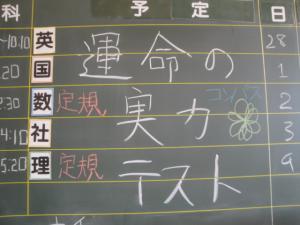 科 予定 日
~10.10 英 運命の 28
.20 国 1
2.30 数 定規 実力 コンパス 2
4:10 社 3
5.20 理 定規 テスト 9